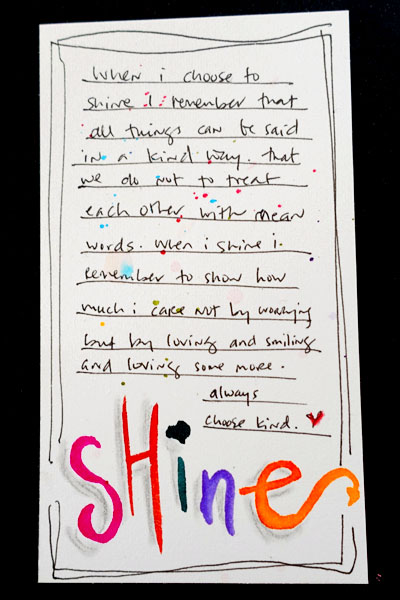 when i choose to
shine I remember that
all things can be said
in a kind way. that
we do not to treat
each other with mean
words. when i shine i
remember to show how
much i care not by worrying
but by loving and smiling
and loving some more.
always
choose kind.
sHine